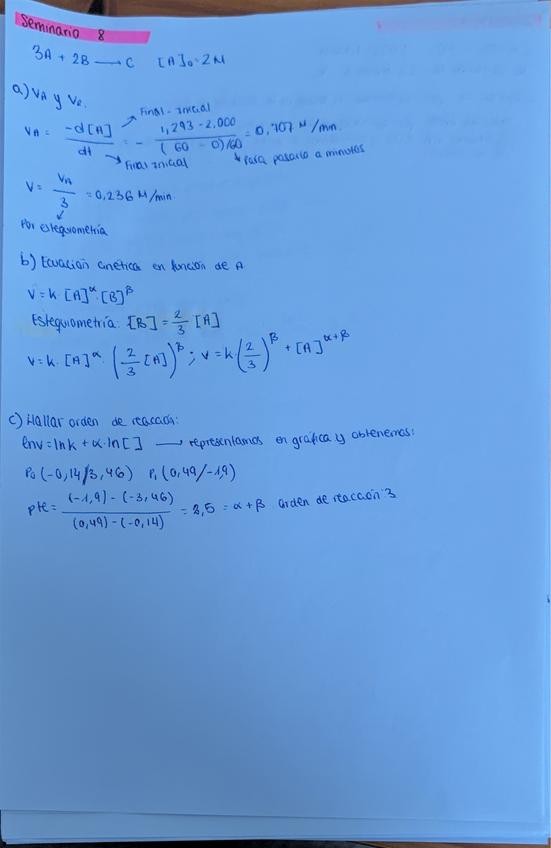 Seminario 8
3A + 2B → C [A]₀ = 2M
a) VA y VR.
Final - inicial
VA = -d[A]/dt = - (1,293 - 2,000)/((60 - 0)/60) = 0,707 M/min.
Final inicial Para pasarlo a minutos
V = VA/3 = 0,236 M/min
Por estequiometría
b) Ecuación cinética en función de A
V = k · [A]^α · [B]^β
Estequiometría: [B] = 2/3 [A]
V = k · [A]^α · (2/3 [A])^β ; V = k · (2/3)^β + [A]^α+β
c) Hallar orden de reacción:
lnv = lnk + α·ln[ ] → representamos en gráfica y obtenemos:
P₀ (-0,14/3,46) P₁ (0,49/-1,9)
pte = ((-1,9) - (-3,46))/((0,49) - (-0,14)) = 2,5 = α + β orden de reacción 3